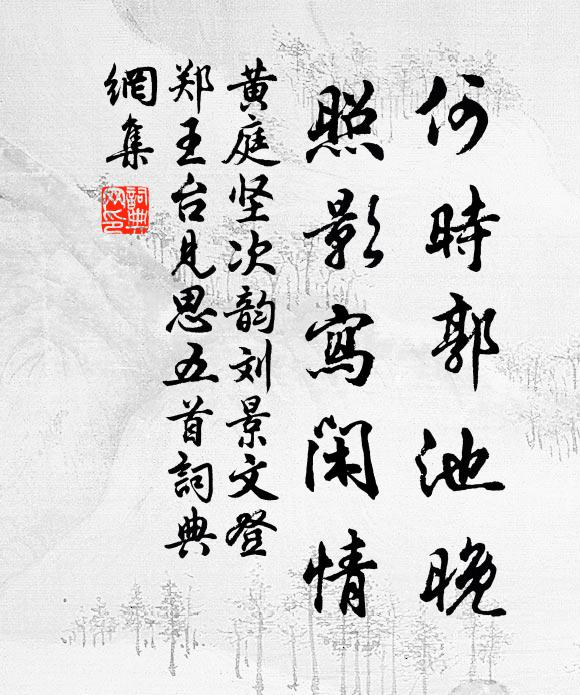 何時郭池晚
照影寫閑情
黃庭坚次韵刘景文登
郑王台見思五首詞典
網集
詞典
网印